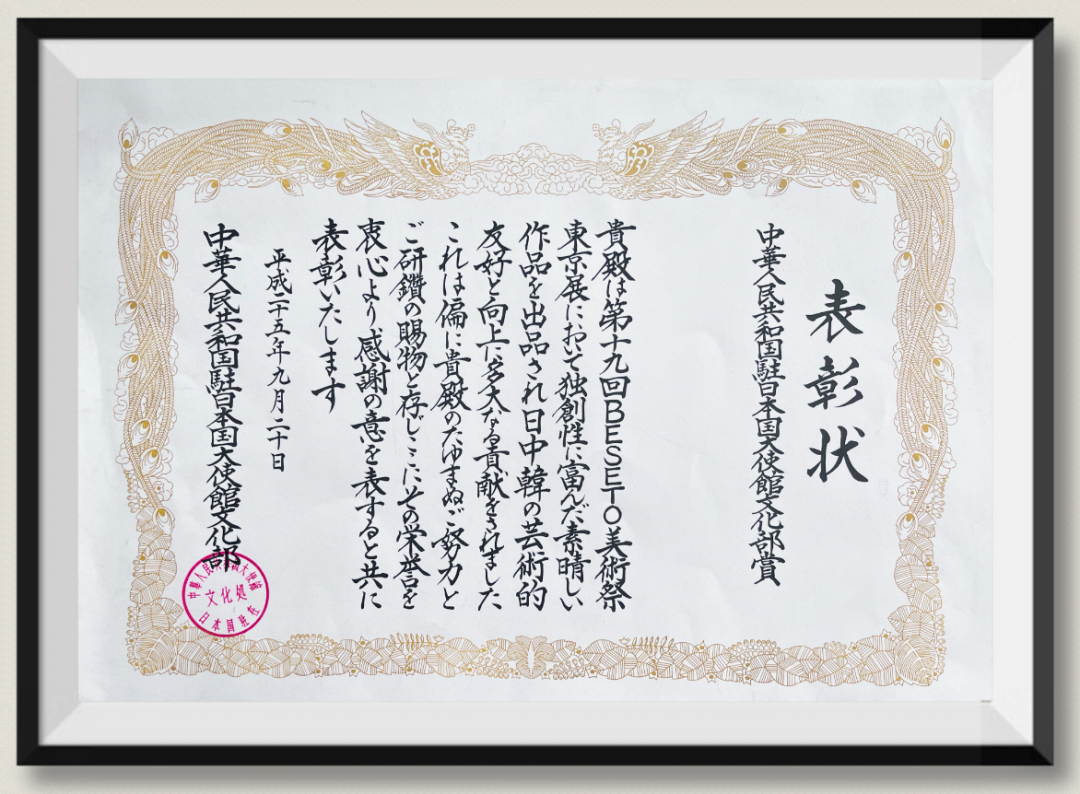 表彰状
中華人民共和国駐日本国大使館文化部賞
貴殿は第十九回BESETO美術祭
東京展において独創性に富んだ素晴しい
作品を出品され日中韓の芸術的
友好と向上に多大なる貢献をされました
これは偏に貴殿のたゆまぬご努力と
ご研鑽の賜物と存じここにその栄誉を
衷心より感謝の意を表すると共に
表彰いたします
平成二十五年九月二十日
中華人民共和国駐日本国大使館文化部
文化処
日本国駐在